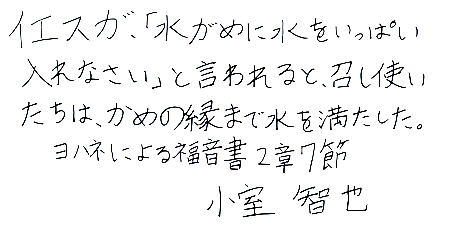 イエスが、「水がめに水をいっぱい
入れなさい」と言われると、召し使い
たちは、かめの縁まで水を満たした。
ヨハネによる福音書2章7節
小室 智也